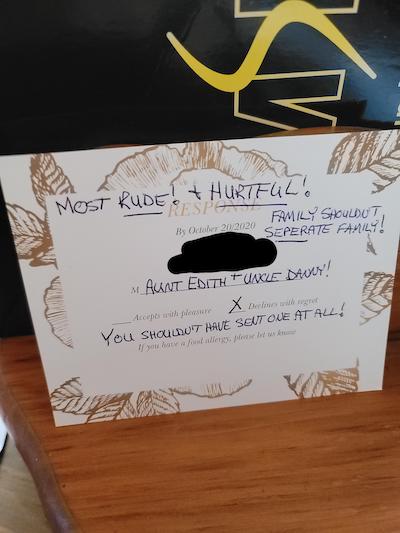 MOST RUDE! + HURTFUL!
RESPONSE
FAMILY SHOULDN'T
SEPERATE FAMILY!
By October 20/2020
M AUNT EDITH + UNCLE DANNY!
Accepts with pleasure X Declines with regret
YOU SHOULDN'T HAVE SENT ONE AT ALL!
If you have a food allergy, please let us know